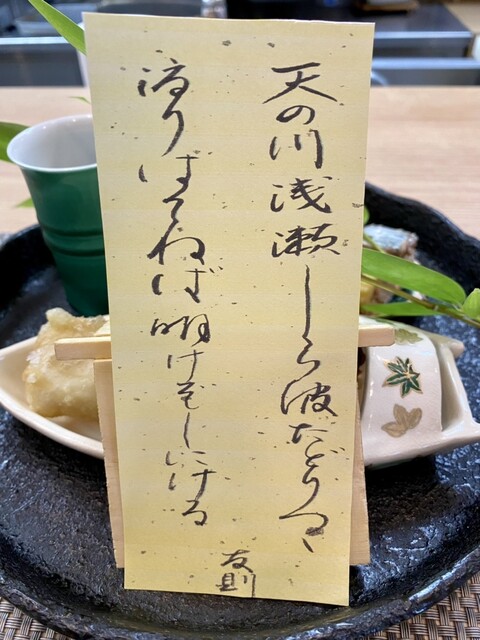 天の川浅瀬しら波たどりつゝ
渡りはてねば明けぞしにける
友則